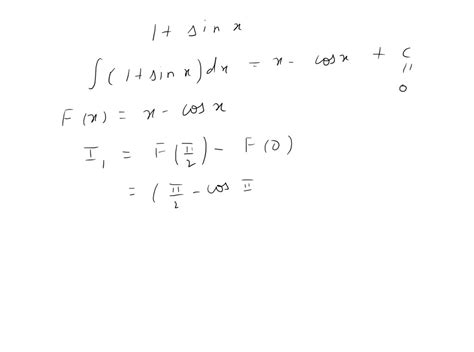 1 + sin x
∫(1+sin x) dx = x - cos x + C
"
0
F(x) = x - cos x
I₁ = F(π/2) - F(0)
= (π/2 - cos π